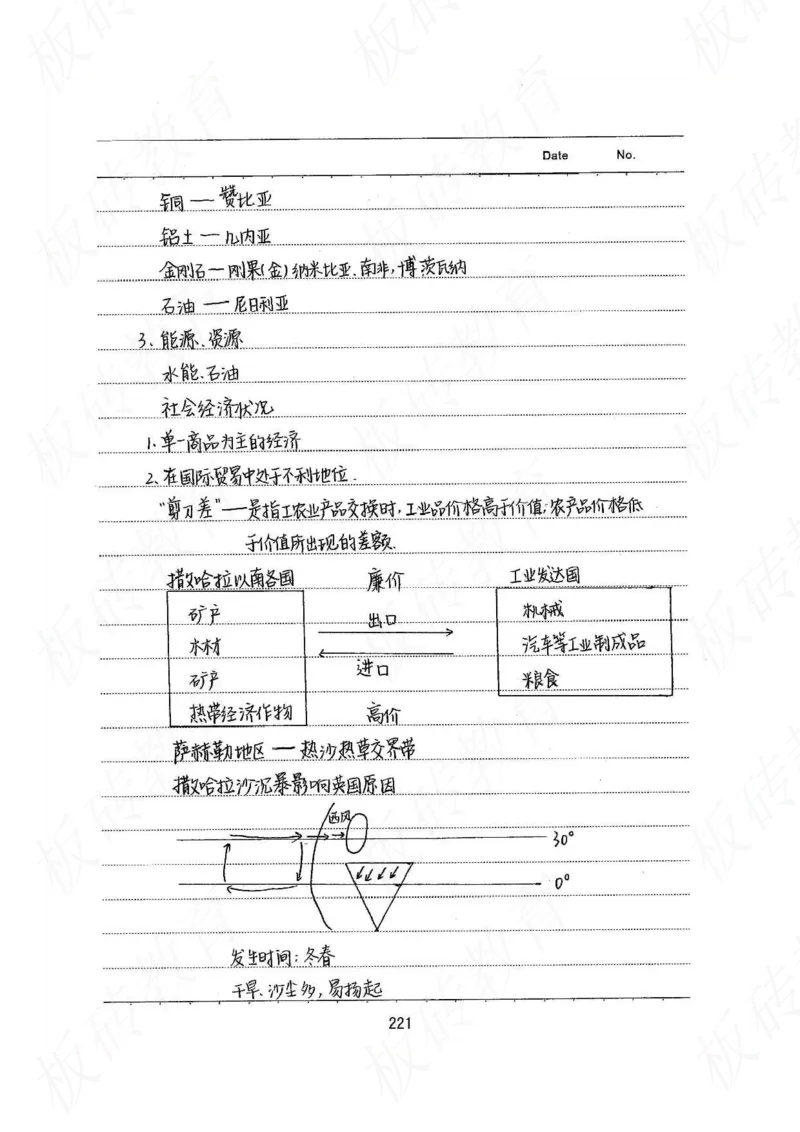 Date No.
铜 — 赞比亚
铝土 — 几内亚
金刚石 — 刚果(金)纳米比亚、南非,博茨瓦纳
石油 — 尼日利亚
3、能源、资源
水能、石油
社会经济状况
1、单一商品为主的经济
2、在国际贸易中处于不利地位.
"剪刀差"——是指工农业产品交换时,工业品价格高于价值;农产品价格低
于价值所出现的差额.
撒哈拉以南各国 廉价 工业发达国
矿产 出口 机械
木材 汽车等工业制成品
矿产 进口 粮食
热带经济作物 高价
萨赫勒地区 — 热沙热草交界带
撒哈拉沙沉暴影响英国原因
西风
30°
0°
发生时间:冬春
干旱、沙尘多,易扬起
221
板砖教育